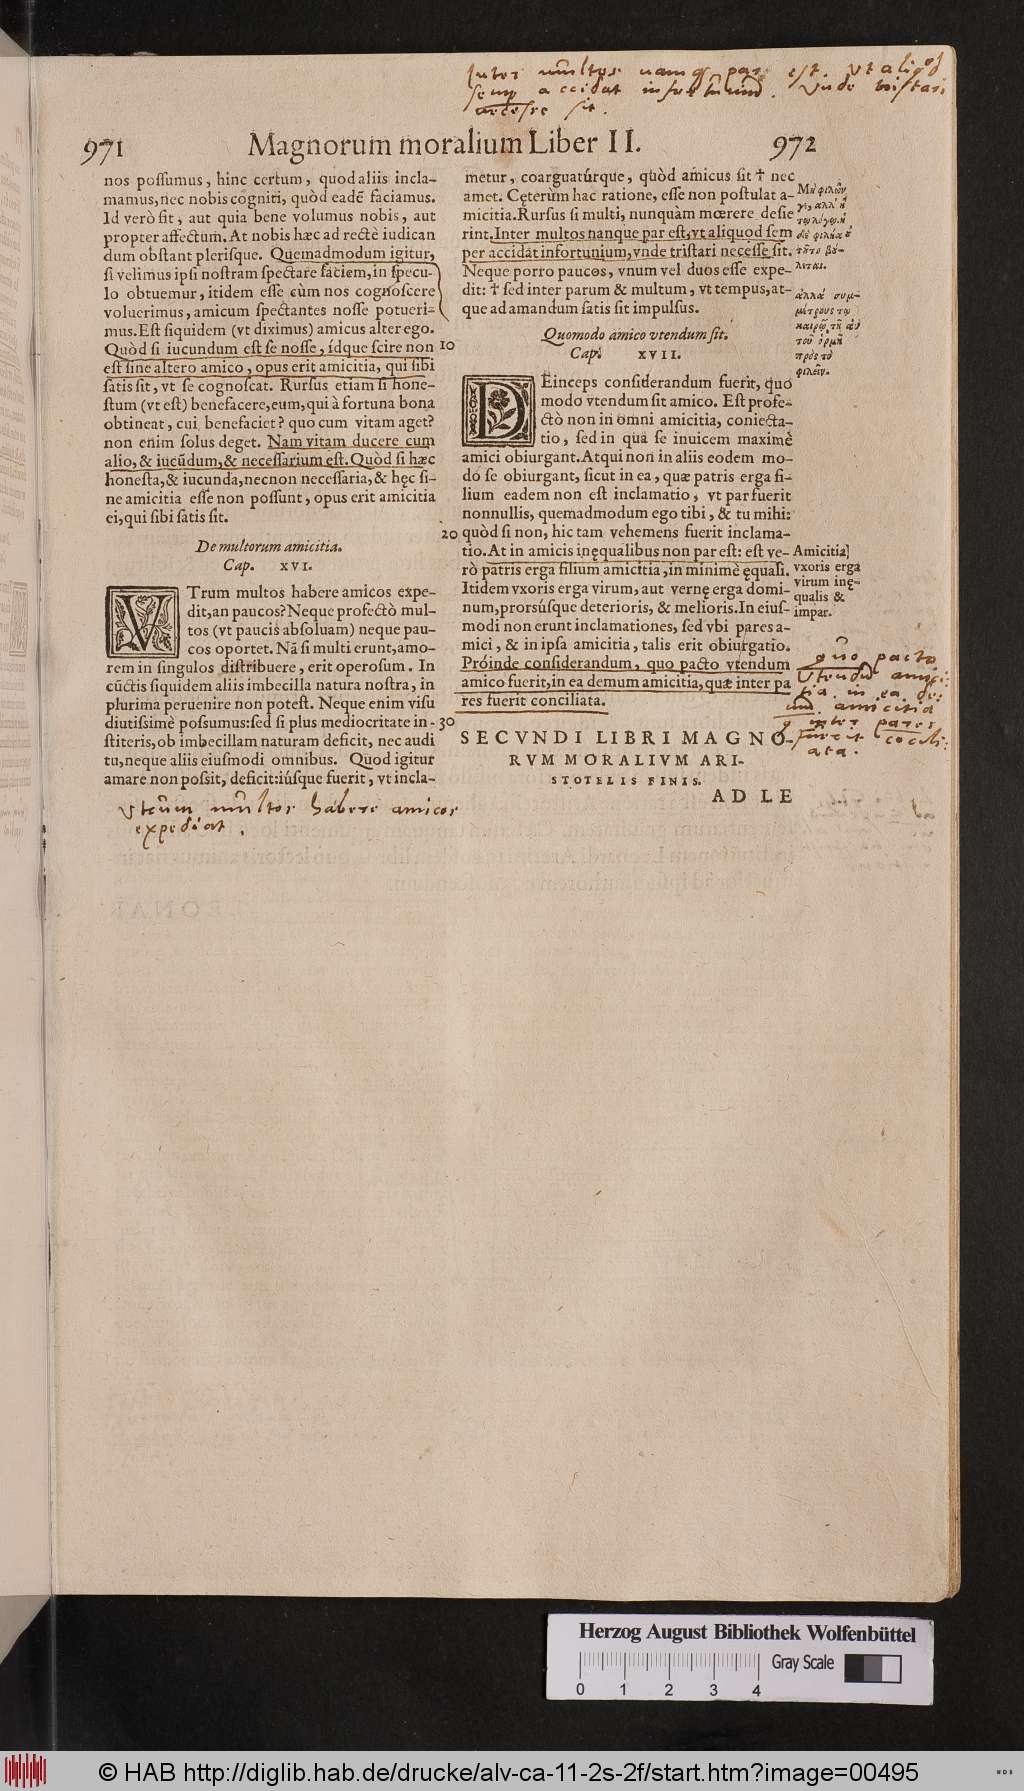 Inter multos namq; par est, vt aliqod
semp accidat infortuniũ. Vnde tristari
necesse sit.
971 Magnorum moralium Liber II. 972
nos possumus, hinc certum, quod aliis incla-
mamus, nec nobis cogniti, quòd eadẽ faciamus.
Id verò fit, aut quia bene volumus nobis, aut
propter affectum. At nobis hæc ad rectè iudican
dum obstant plerisque. Quemadmodum igitur,
si velimus ipsi nostram spectare faciem, in specu-
lo obtuemur, itidem esse cùm nos cognoscere
voluerimus, amicum spectantes nosse potueri-
mus. Est siquidem (vt diximus) amicus alter ego.
Quòd si iucundum est se nosse, ídque scire non
est sine altero amico, opus erit amicitia, qui sibi
satis sit, vt se cognoscat. Rursus etiam si hone-
stum (vt est) benefacere, eum, qui à fortuna bona
obtineat, cui benefaciet? quo cum vitam aget?
non enim solus deget. Nam vitam ducere cum
alio, & iucũdum, & necessarium est. Quòd si hæc
honesta, & iucunda, necnon necessaria, & hęc si-
ne amicitia esse non possunt, opus erit amicitia
ei, qui sibi satis sit.
De multorum amicitia.
Cap. XVI.
VTrum multos habere amicos expe-
dit, an paucos? Neque profectò mul-
tos (vt paucis absoluam) neque pau-
cos oportet. Nã si multi erunt, amo-
rem in singulos distribuere, erit operosum. In
cũctis siquidem aliis imbecilla natura nostra, in
plurima peruenire non potest. Neque enim visu
diutissimè possumus: sed si plus mediocritate in-
stiteris, ob imbecillam naturam deficit, nec audi
tu, neque aliis eiusmodi omnibus. Quod igitur
amare non possit, deficit: iúsque fuerit, vt incla-
Vtrum multos habere amicos
expediat.
10
20
30
metur, coarguatúrque, quòd amicus sit † nec
amet. Cęterùm hac ratione, esse non postulat a-
micitia. Rursus si multi, nunquàm mœrere desie
rint. Inter multos nanque par est, vt aliquod sem
per accidat infortunium, vnde tristari necesse sit.
Neque porro paucos, vnum vel duos esse expe-
dit: † sed inter parum & multum, vt tempus, at-
que ad amandum satis sit impulsus.
Quomodo amico vtendum sit.
Cap. XVII.
DEinceps considerandum fuerit, quo
modo vtendum sit amico. Est profe-
ctò non in omni amicitia, coniecta-
tio, sed in qua se inuicem maximè
amici obiurgant. Atqui non in aliis eodem mo-
do se obiurgant, sicut in ea, quæ patris erga fi-
lium eadem non est inclamatio, vt par fuerit
nonnullis, quemadmodum ego tibi, & tu mihi:
quòd si non, hic tam vehemens fuerit inclama-
tio. At in amicis inęqualibus non par est: est ve-
rò patris erga filium amicitia, in minimè ęquali.
Itidem vxoris erga virum, aut vernę erga domi-
num, prorsúsque deterioris, & melioris. In eius-
modi non erunt inclamationes, sed vbi pares a-
mici, & in ipsa amicitia, talis erit obiurgatio.
Próinde considerandum, quo pacto vtendum
amico fuerit, in ea demum amicitia, quæ inter pa
res fuerit conciliata.
SECVNDI LIBRI MAGNO-
RVM MORALIVM ARI-
STOTELIS FINIS.
AD LE
ἀλλὰ συμ-
πρὸς τὸ
φιλεῖν.
Amicitia
vxoris erga
virum inę-
qualis &
impar.
quo pacto
vtendũ amici-
tia in ea de-
mũ amicitia
q inter pares
fuerit cõcili-
ata.
Herzog August Bibliothek Wolfenbüttel
Gray Scale
0 1 2 3 4
© HAB http://diglib.hab.de/drucke/alv-ca-11-2s-2f/start.htm?image=00495